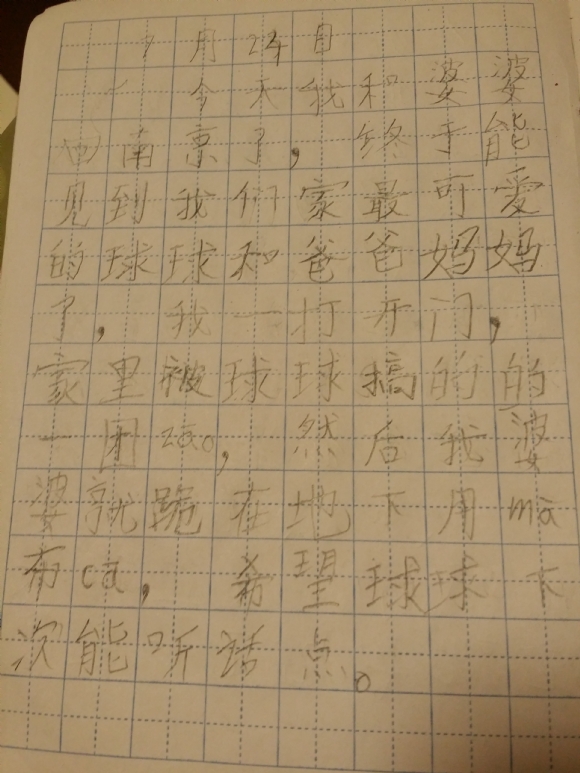 7月24日
今天我和婆婆
回南京了，终于能
见到我们家最可爱
的球球和爸爸妈妈
了，我一打开门，
家里被球球搞的的
一团zāo，然后我婆
婆就跪在地下用mā
布cā，希望球球下
次能听话点。